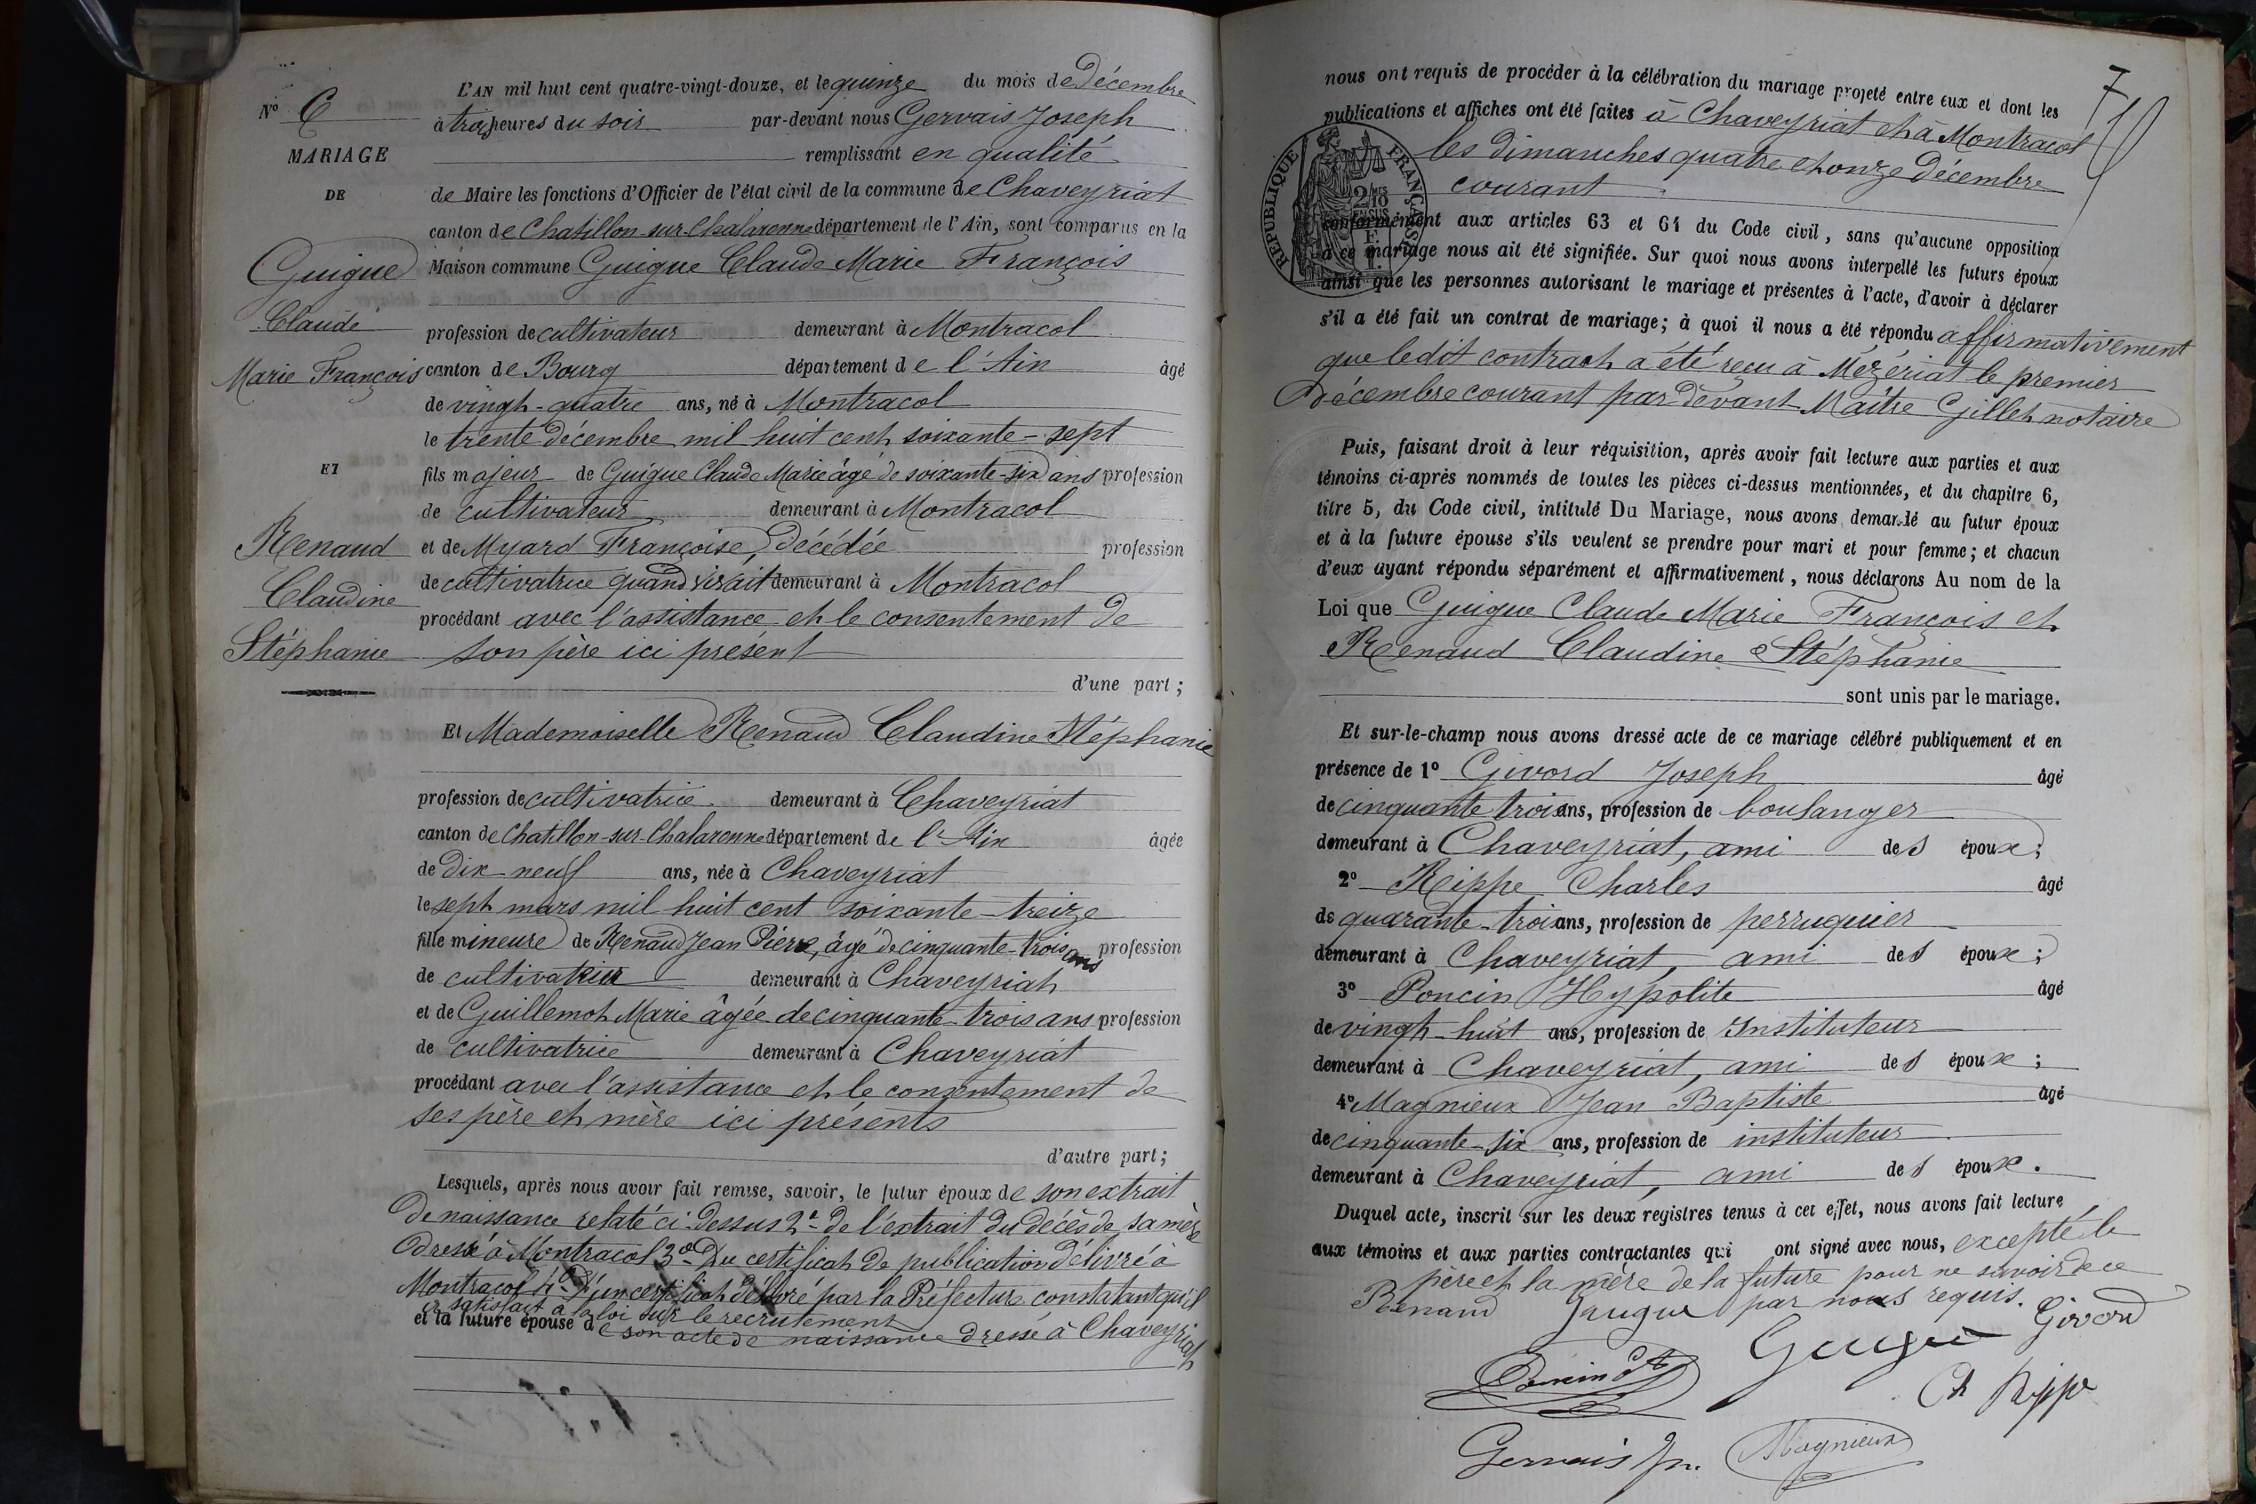 L'AN mil huit cent quatre-vingt-douze, et le quinze du mois de Décembre
à trois heures du soir par-devant nous Gervais Joseph
remplissant en qualité
de Maire les fonctions d'Officier de l'état civil de la commune de Chaveyriat
canton de Chatillon-sur-Chalaronne département de l'Ain, sont comparus en la
Maison commune Guigue Claude Marie François
profession de cultivateur demeurant à Montracol
canton de Bourg département de l'Ain âgé
de vingt-quatre ans, né à Montracol
le trente décembre mil huit cent soixante-sept
fils majeur de Guigue Claude Marie âgé de soixante-six ans profession
de cultivateur demeurant à Montracol
et de Myard Françoise, Décédée profession
de cultivatrice quand vivait demeurant à Montracol
procédant avec l'assistance et le consentement de
son père ici présent
d'une part ;
Et Mademoiselle Renaud Claudine Stéphanie
profession de cultivatrice demeurant à Chaveyriat
canton de Chatillon-sur-Chalaronne département de l'Ain âgée
de Dix neuf ans, née à Chaveyriat
le sept mars mil huit cent soixante-treize
fille mineure de Renaud Jean Pierre, âgé de cinquante-trois ans profession
de cultivateur demeurant à Chaveyriat
et de Guillemot Marie âgée de cinquante-trois ans profession
de cultivatrice demeurant à Chaveyriat
procédant avec l'assistance et le consentement de
ses père et mère ici présents
d'autre part ;
Lesquels, après nous avoir fait remise, savoir, le futur époux de son extrait
De naissance relaté ci-dessus 2º de l'extrait du décès de sa mère
dressé à Montracol 3º Du certificat de publication délivré à
Montracol 4º D'un certificat délivré par la Préfecture constatant qu'il
a satisfait à la loi sur le recrutement
et la future épouse de son acte de naissance dressé à Chaveyriat
Nº 6
MARIAGE
DE
Guigue
Claude
Marie François
ET
Renaud
Claudine
Stéphanie
7
nous ont requis de procéder à la célébration du mariage projeté entre eux et dont les
publications et affiches ont été faites à Chaveyriat et à Montracol
les dimanches quatre et onze Décembre
courant
RÉPUBLIQUE FRANÇAISE
conformément aux articles 63 et 64 du Code civil, sans qu'aucune opposition
à ce mariage nous ait été signifiée. Sur quoi nous avons interpellé les futurs époux
ainsi que les personnes autorisant le mariage et présentes à l'acte, d'avoir à déclarer
s'il a été fait un contrat de mariage ; à quoi il nous a été répondu affirmativement
que ledit contrat a été reçu à Mézériat le premier
Décembre courant par devant Maître Gillet notaire
Puis, faisant droit à leur réquisition, après avoir fait lecture aux parties et aux
témoins ci-après nommés de toutes les pièces ci-dessus mentionnées, et du chapitre 6,
titre 5, du Code civil, intitulé Du Mariage, nous avons demandé au futur époux
et à la future épouse s'ils veulent se prendre pour mari et pour femme ; et chacun
d'eux ayant répondu séparément et affirmativement, nous déclarons Au nom de la
Loi que Guigue Claude Marie François et
Renaud Claudine Stéphanie
sont unis par le mariage.
Et sur-le-champ nous avons dressé acte de ce mariage célébré publiquement et en
présence de 1º Givord Joseph âgé
de cinquante trois ans, profession de boulanger
demeurant à Chaveyriat, ami des époux ;
2º Reippe Charles âgé
de quarante-trois ans, profession de perruquier
demeurant à Chaveyriat, ami des époux ;
3º Poncin Hypolite âgé
de vingt-huit ans, profession de Instituteur
demeurant à Chaveyriat, ami des époux ;
4º Magnieux Jean Baptiste âgé
de cinquante-six ans, profession de instituteur
demeurant à Chaveyriat, ami des époux.
Duquel acte, inscrit sur les deux registres tenus à cet effet, nous avons fait lecture
aux témoins et aux parties contractantes qui ont signé avec nous, excepté le
père et la mère de la future pour ne savoir de ce
par nous requis.
Renaud Guigue Givord
Guigue
Poncin
Ch Rippe
Gervais Jh. Magnieux